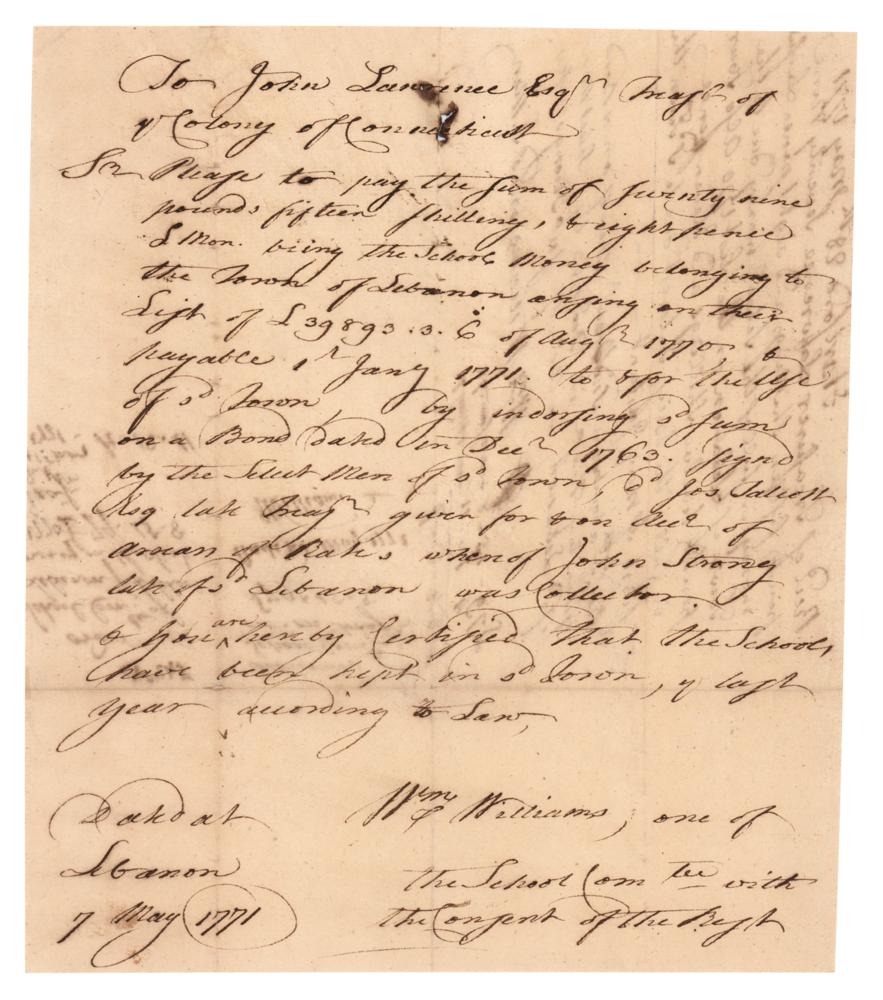 To John Lawrence Esqr. Treasr of
ye Colony of Connecticutt
Sr. Please to pay the Sum of Seventy nine
pounds fifteen shillings, & eight pence
L Mon. being the School Money belonging to
the Town of Lebanon arising on their
List of £39893.3.6 of Augt 1770, &
payable 1st Jany 1771. to & for the Use
of sd Town, by indorsing sd Sum
on a Bond dated in Decr 1763. signd
by the Select Men of sd Town, to Jos. Talcott
Esq late Treasr given for & on Acct of
arrears of Rates whereof John Strong
late of sd Lebanon was Collector
& you are hereby Certified That the Schools,
have been kept in sd Town, ye last
year according to Law,
Dated at
Lebanon
7 May 1771
Wm Williams, one of
the School Comtee with
the Consent of the Rest